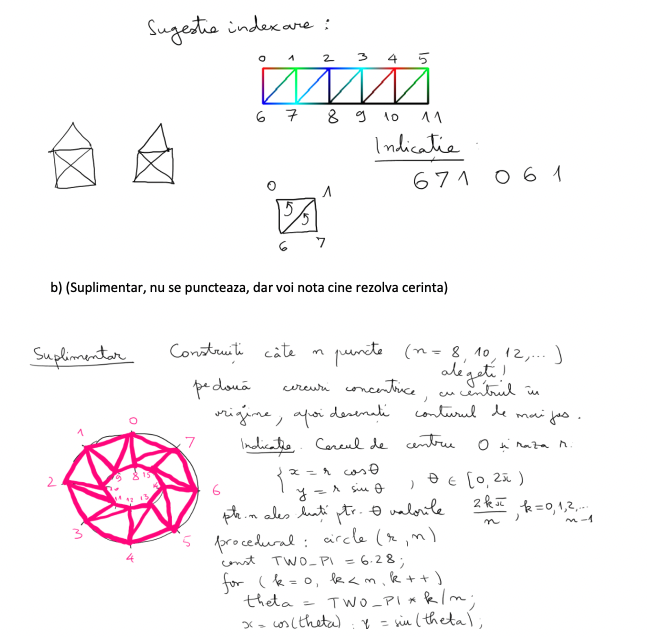 Sugestie indexare :
0 1 2 3 4 5
6 7 8 9 10 11
Indicație
6 7 1 0 6 1
0 1
5 5
6 7
b) (Suplimentar, nu se puncteaza, dar voi nota cine rezolva cerinta)
Suplimentar Construiți câte n puncte (n = 8, 10, 12, ... )
alegeți!
pe două cercuri concentrice, cu centrul în
origine, apoi desenați conturul de mai jos.
Indicație. Cercul de centru O și raza r.
{ x = r cos θ
y = r sin θ , θ ∈ [0, 2π)
ptr. n ales luați ptr. θ valorile 2kπ/n, k=0,1,2,... n-1
procedural : circle (r, n)
const TWO_PI = 6.28;
for (k = 0, k < n, k++)
theta = TWO_PI * k/n;
x = cos(theta), y = sin(theta);
0
1 7
2 6
3 5
4
9 8 15